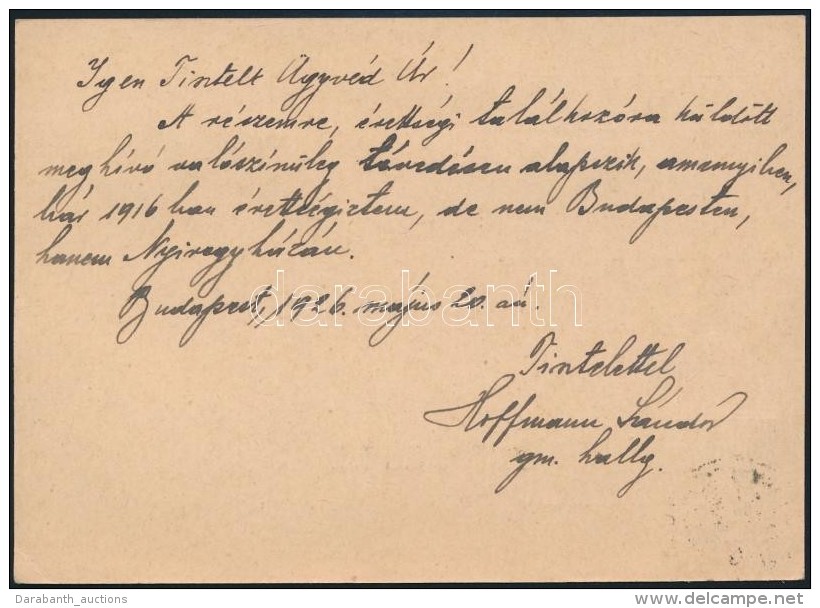 Igen Tisztelt Ügyvéd Úr!
A részemre, érettségi találkozóra küldött
meghívó valószinüleg tévedésen alapszik, amenyiben,
bár 1916 ban érettségiztem, de nem Budapesten,
hanem Nyiregyházán.
Budapest, 1926. május 20. án.
Tisztelettel
Hoffmann Sándor
gm. hallg.
darabanth
Darabanth_auctions
delcampe.net